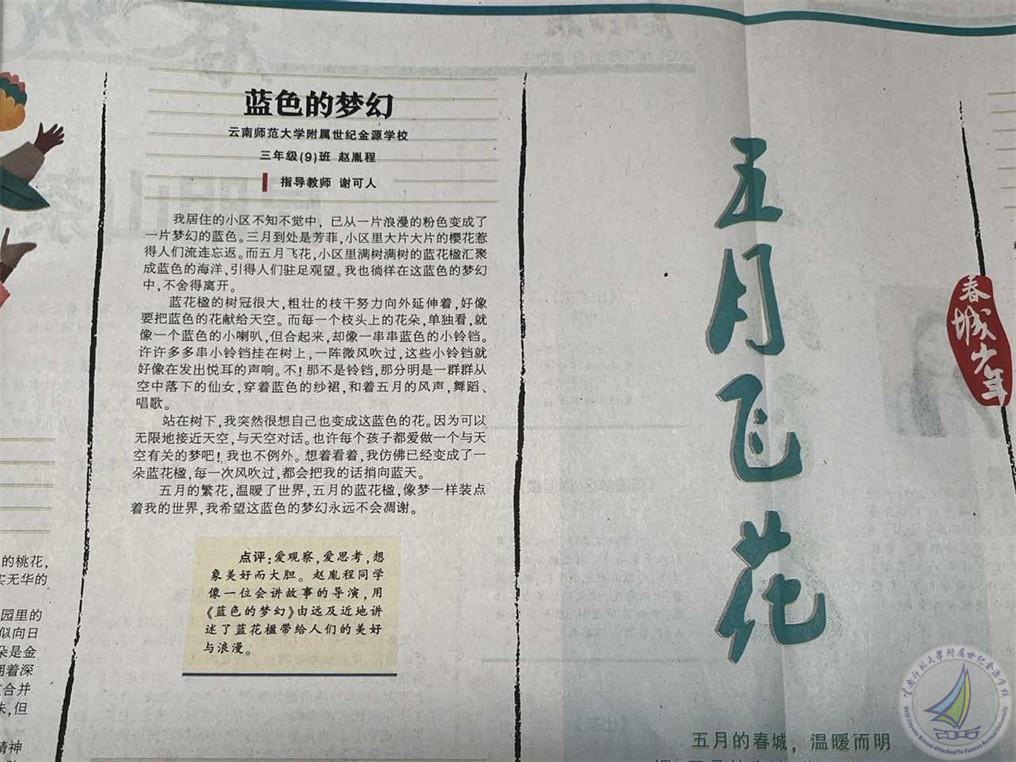 蓝色的梦幻
云南师范大学附属世纪金源学校
三年级(9)班 赵胤程
指导教师 谢可人
我居住的小区不知不觉中，已从一片浪漫的粉色变成了
一片梦幻的蓝色。三月到处是芳菲,小区里大片大片的樱花惹
得人们流连忘返。而五月飞花,小区里满树满树的蓝花楹汇聚
成蓝色的海洋,引得人们驻足观望。我也徜徉在这蓝色的梦幻
中,不舍得离开。
蓝花楹的树冠很大,粗壮的枝干努力向外延伸着,好像
要把蓝色的花献给天空。而每一个枝头上的花朵,单独看,就
像一个蓝色的小喇叭,但合起来,却像一串串蓝色的小铃铛。
许许多多串小铃铛挂在树上,一阵微风吹过,这些小铃铛就
好像在发出悦耳的声响。不!那不是铃铛,那分明是一群群从
空中落下的仙女,穿着蓝色的纱裙,和着五月的风声,舞蹈、
唱歌。
站在树下,我突然很想自己也变成这蓝色的花。因为可以
无限地接近天空,与天空对话。也许每个孩子都爱做一个与天
空有关的梦吧!我也不例外。想着看着,我仿佛已经变成了一
朵蓝花楹,每一次风吹过,都会把我的话捎向蓝天。
五月的繁花,温暖了世界,五月的蓝花楹,像梦一样装点
着我的世界,我希望这蓝色的梦幻永远不会凋谢。
点评:爱观察,爱思考,想
象美好而大胆。赵胤程同学
像一位会讲故事的导演,用
《蓝色的梦幻》由远及近地讲
述了蓝花楹带给人们的美好
与浪漫。
五月飞花
春城少年
五月的春城，温暖而明
的桃花,
实无华的
园里的
似向日
朵是金
拥着深
合并
朱,但
精神
云南师范大学附属世纪金源学校